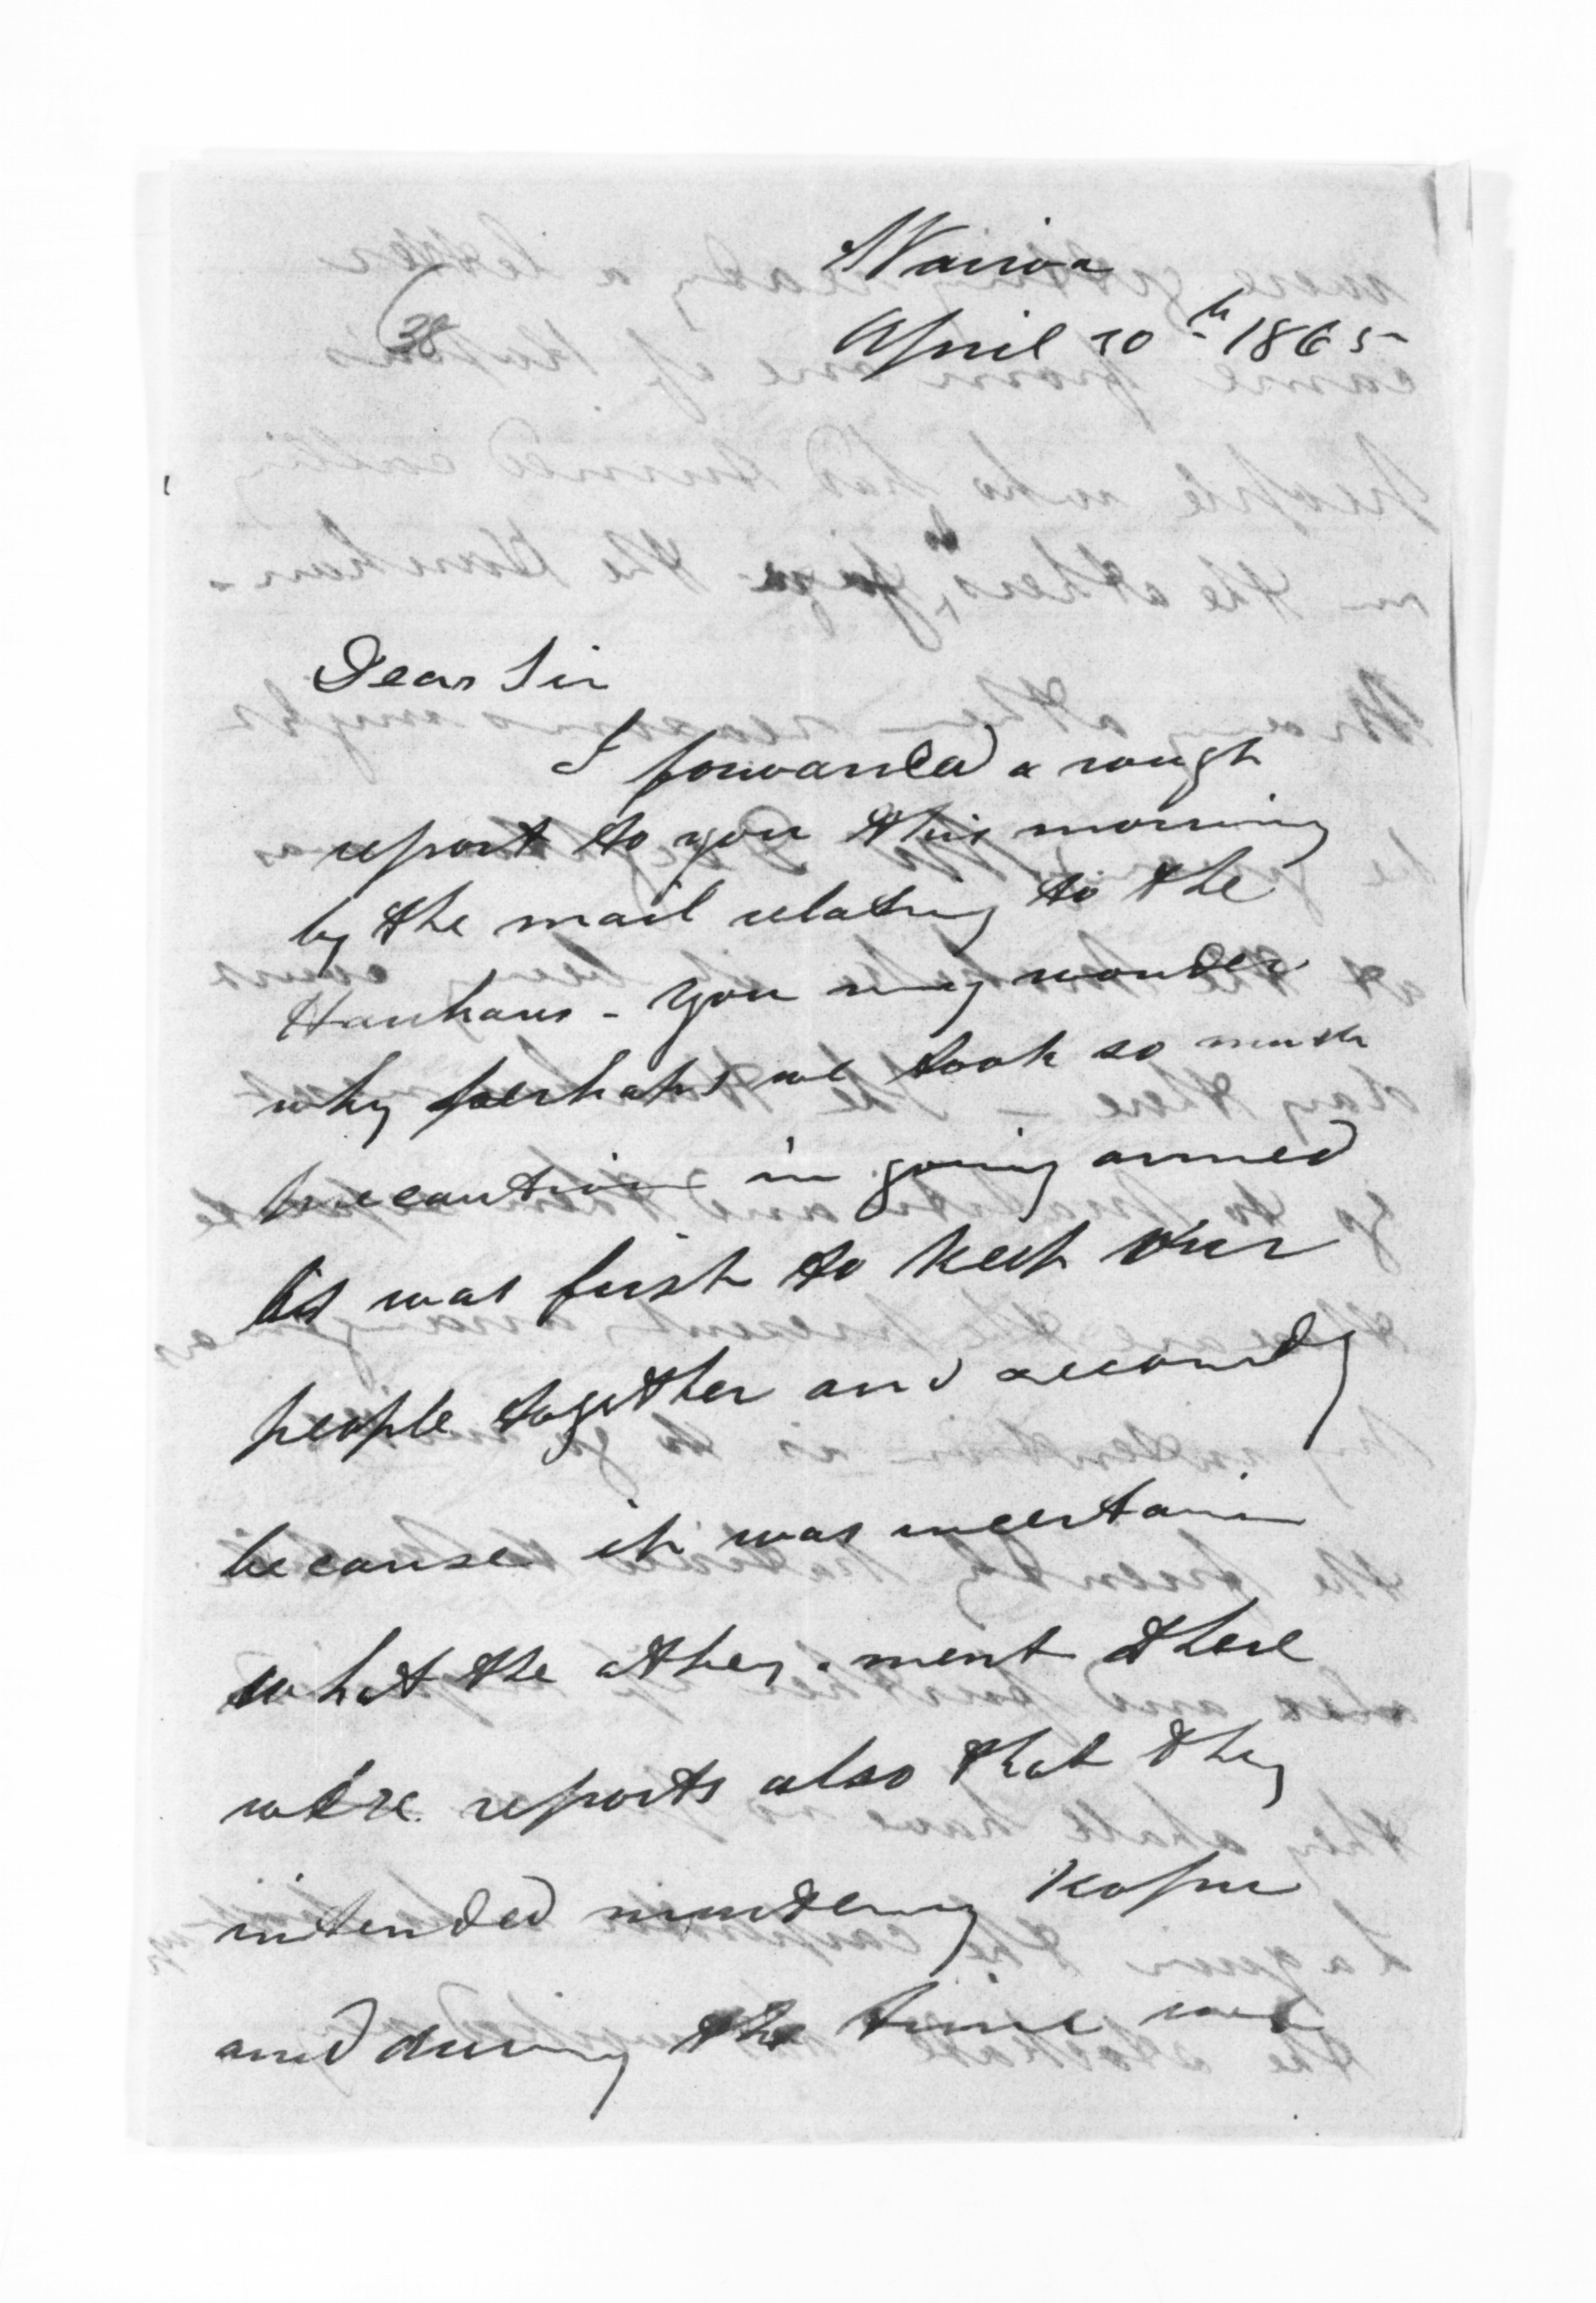 Wairoa
(38
April 10th 1865
Dear Sir
I forwarded a rough
report to you this morning
by the mail relating to the
Hauhaus - You may wonder
why perhaps we took so much
precaution in going armed
it was first to keep our
people together and secondly
because it was uncertain
what the other ment there
were reports also that they
intended murdering Kopu
and during the time we